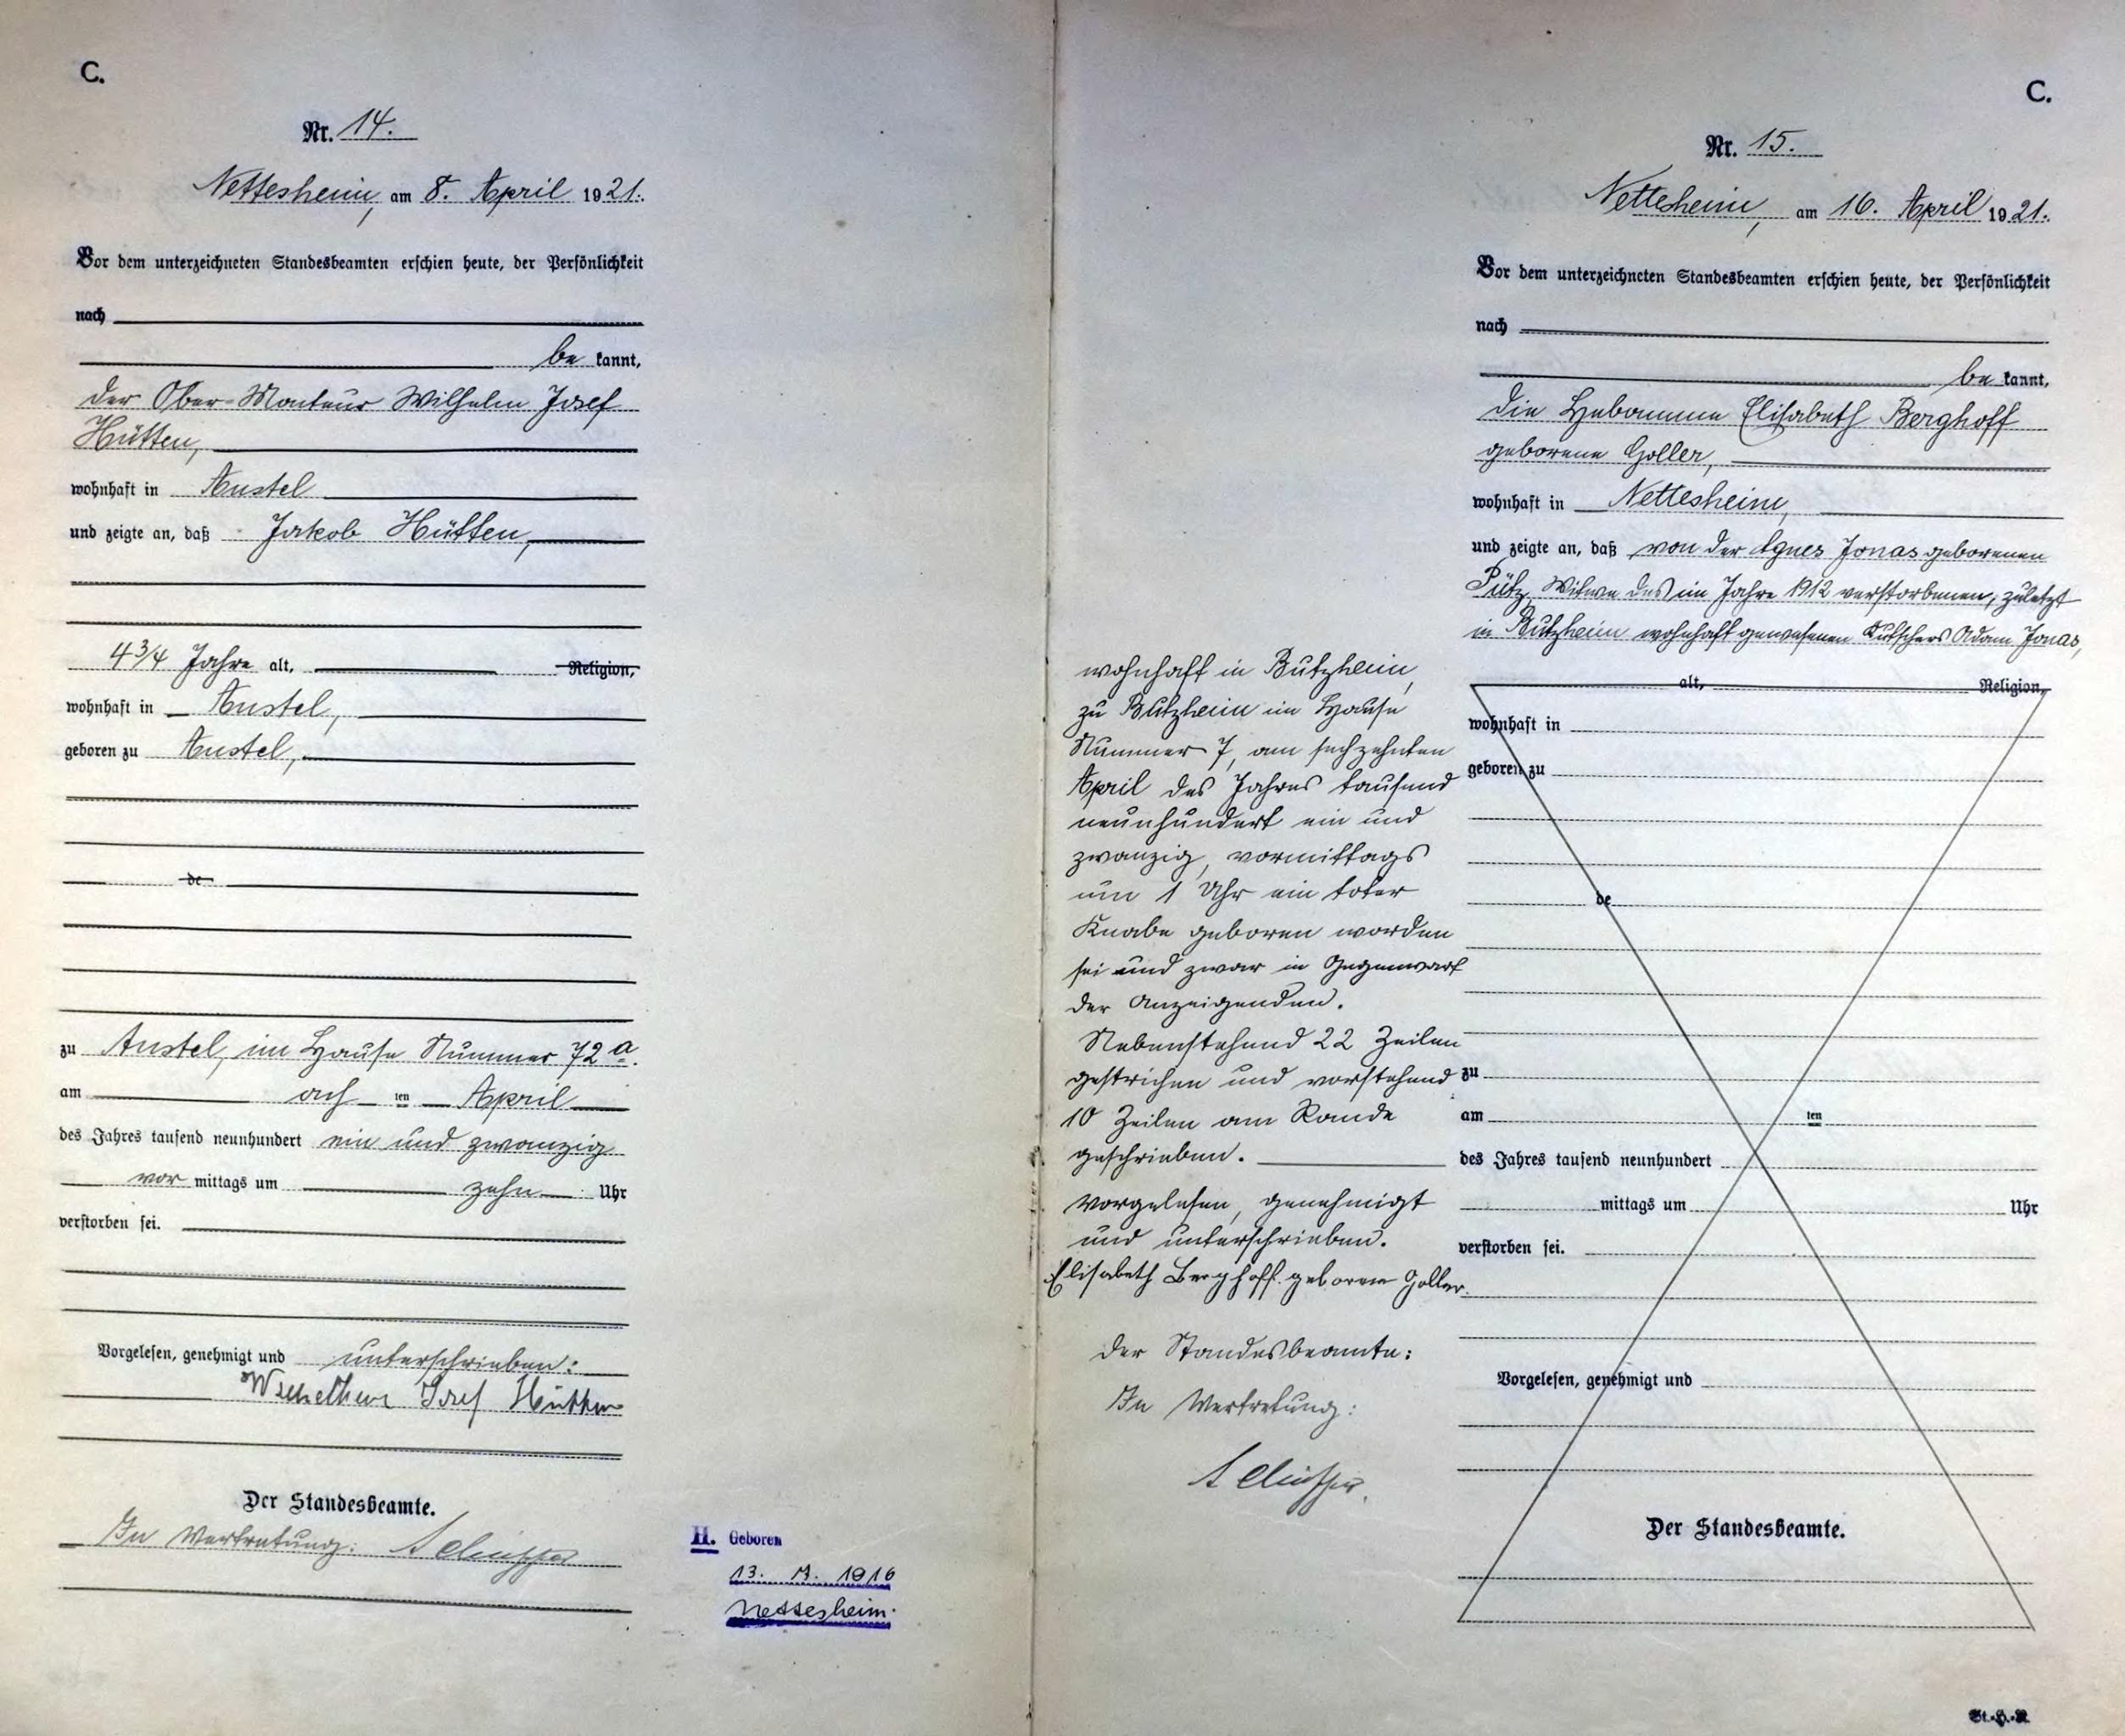 C.
Nr. 14.
Nettesheim, am 8. April 1921.
Vor dem unterzeichneten Standesbeamten erschien heute, der Persönlichkeit
nach
be kannt,
der Ober-Monteur Wilhelm Josef
Hütten,
wohnhaft in Anstel
und zeigte an, daß Jakob Hütten,
4 3/4 Jahre alt, Religion,
wohnhaft in Anstel,
geboren zu Anstel,
de
zu Anstel, im Hause Nummer 72 a.
am acht ten April
des Jahres tausend neunhundert ein und zwanzig
vor mittags um zehn Uhr
verstorben sei.
Vorgelesen, genehmigt und unterschrieben:
Wilhelm Josef Hütten
Der Standesbeamte.
In Vertretung:
H. Geboren
13. 1916
Nettesheim.
C.
Nr. 15.
Nettesheim, am 16. April 1921.
Vor dem unterzeichneten Standesbeamten erschien heute, der Persönlichkeit
nach
be kannt,
die Hebamme Elisabeth Berghoff
geborene Goller,
wohnhaft in Nettesheim,
und zeigte an, daß von der Agnes Jonas geborenen
Pütz, Witwe des im Jahre 1912 verstorbenen, zuletzt
in Butzheim wohnhaft gewesenen Kutschers Adam Jonas,
wohnhaft in Butzheim,
zu Butzheim im Hause
Nummer 7, am sechzehnten
April des Jahres tausend
neunhundert ein und
zwanzig, vormittags
um 1 Uhr ein toter
Knabe geboren worden
sei und zwar in Gegenwart
der Anzeigenden.
Nebenstehend 22 Zeilen
gestrichen und vorstehend
10 Zeilen am Rande
geschrieben.
Vorgelesen, genehmigt
und unterschrieben.
Elisabeth Berghoff geborene Goller.
Der Standesbeamte:
In Vertretung:
alt, Religion,
wohnhaft in
geboren zu
de
zu
am ten
des Jahres tausend neunhundert
mittags um Uhr
verstorben sei.
Vorgelesen, genehmigt und
Der Standesbeamte.